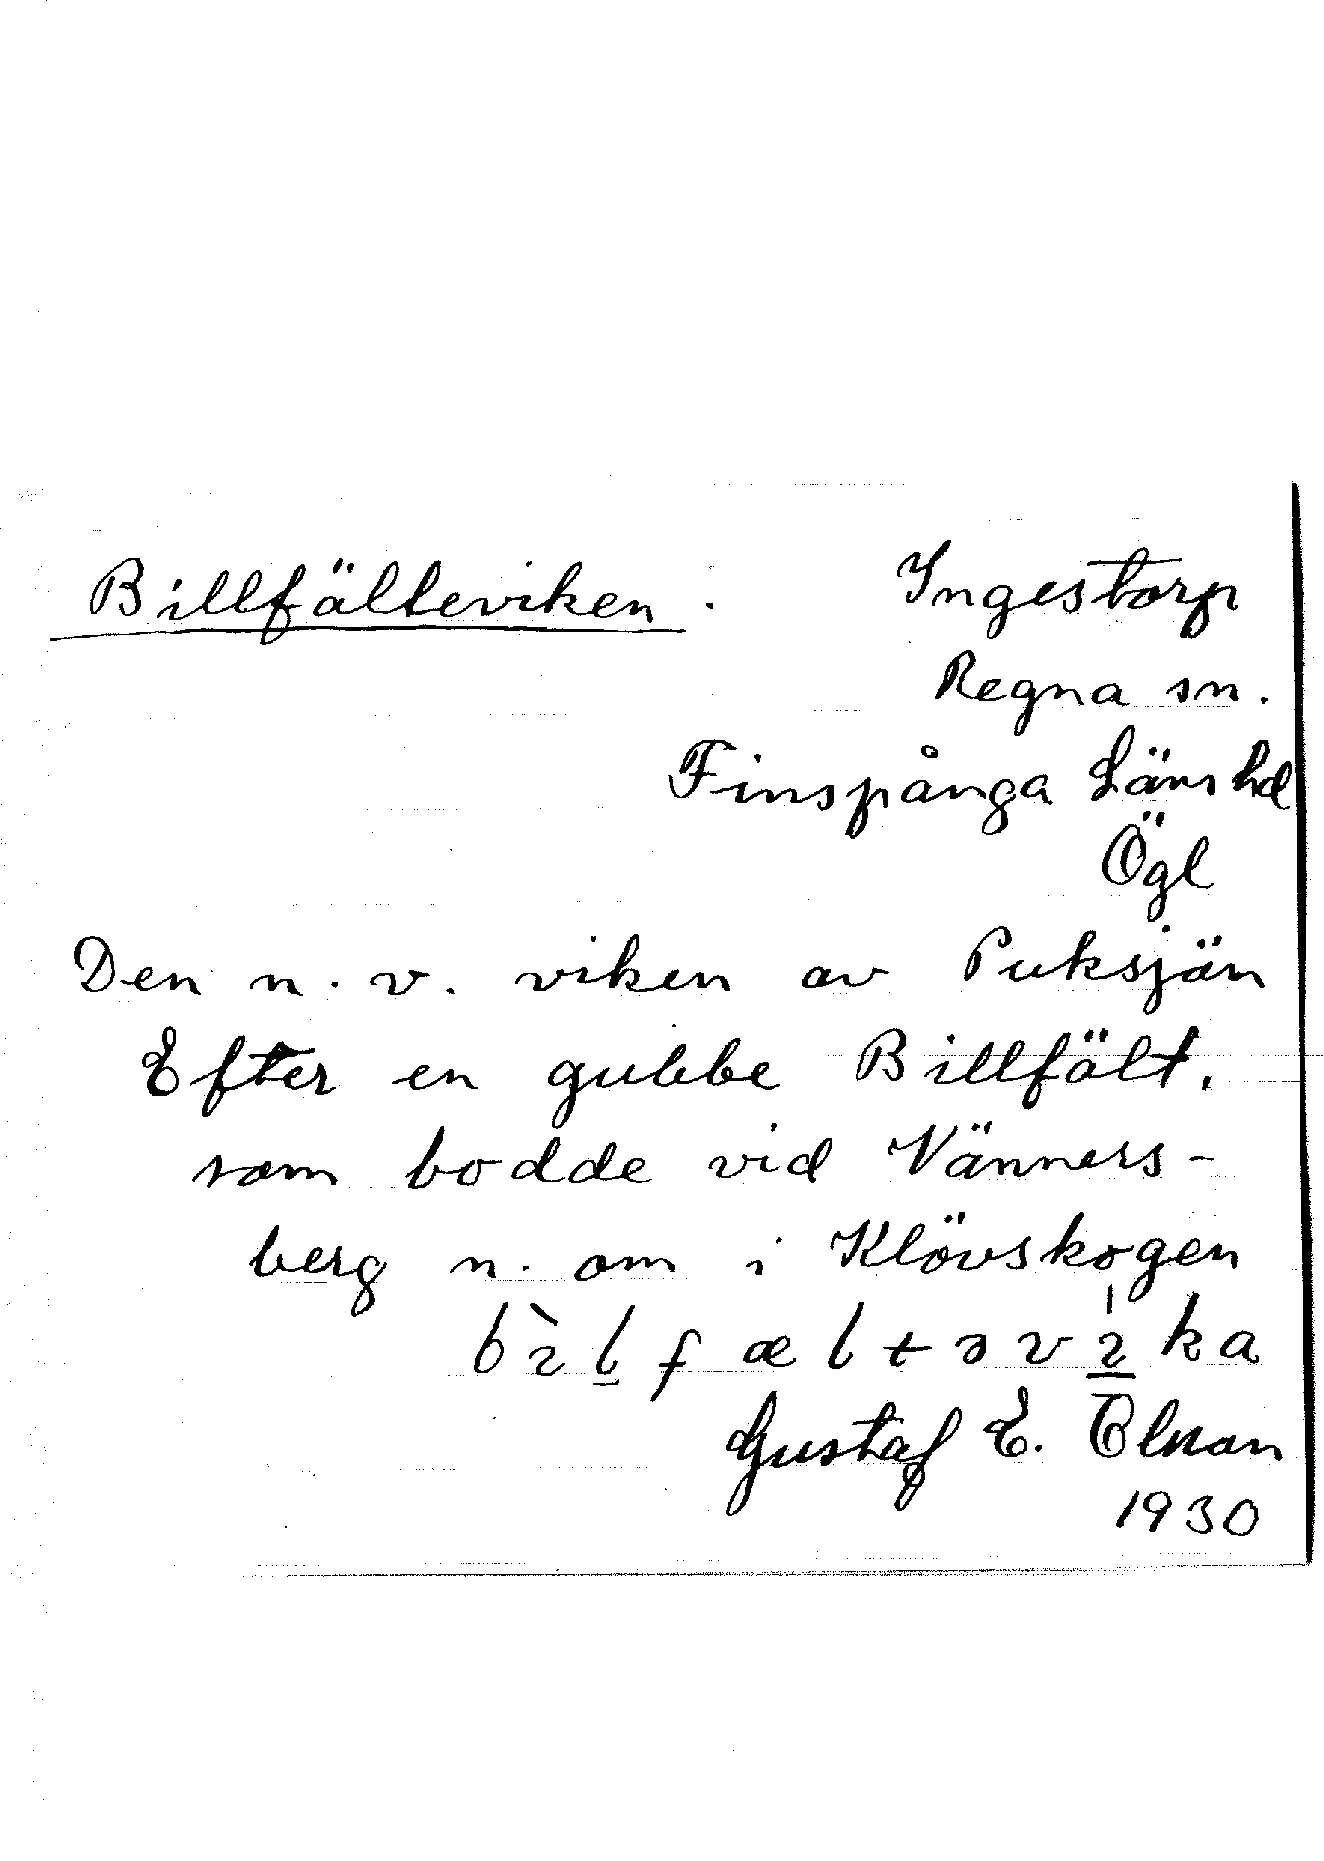 Billfälteviken.
Ingestorp
Regna sn.
Finspånga Läns hd
Ögl
Den n.v. viken av Puksjön
Efter en gubbe Billfält,
som bodde vid Vänners-
berg n. om i Klövskogen
bìlfæltəvíka
Gustaf E.
1930